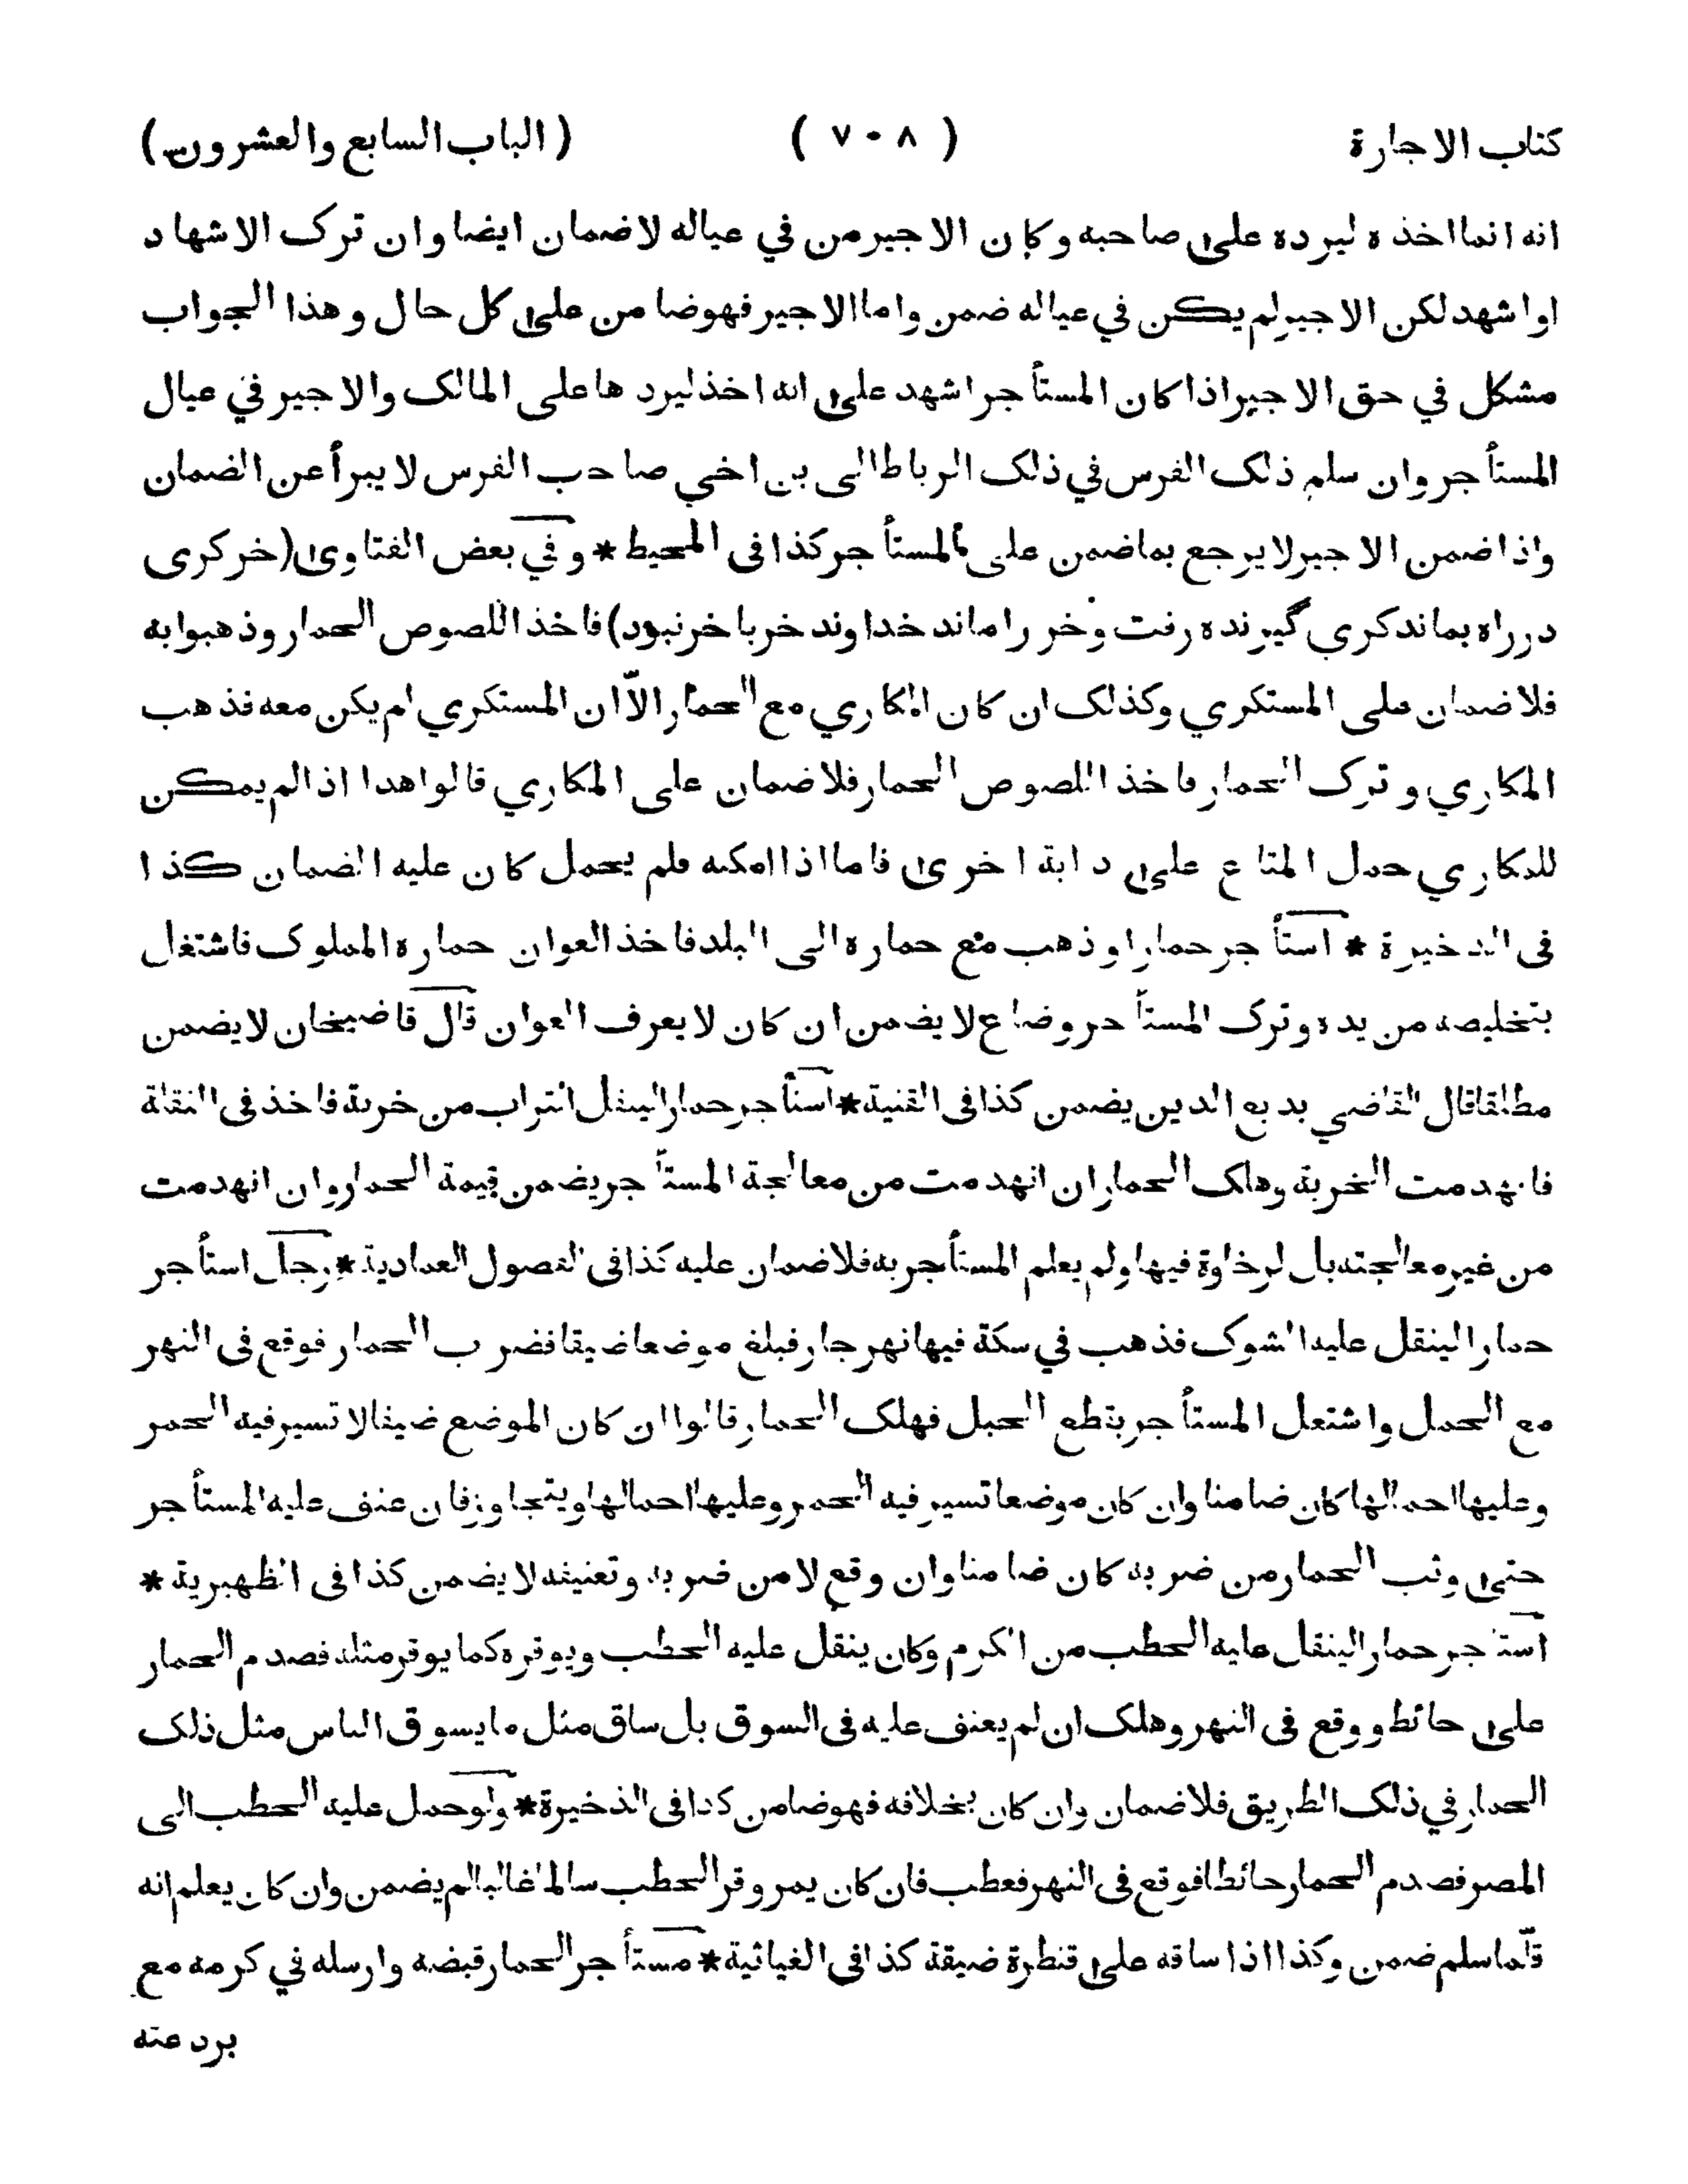 كتاب الاجارة ( ٧٠٨ ) ( الباب السابع والعشرون )
انه انما اخذه ليرده على صاحبه وكان الاجير من في عياله لا ضمان ايضا وان ترك الاشهاد
او اشهد لكن الاجير لم يكن في عياله ضمن واما الاجير فهو ضامن على كل حال وهذا الجواب
مشكل في حق الاجير اذا كان المستأجر اشهد على انه اخذ ليردها على المالك والاجير في عيال
المستأجر وان سلم ذلك الفرس في ذلك الرباط الى بن اخي صاحب الفرس لا يبرأ عن الضمان
واذا ضمن الاجير لا يرجع بما ضمن على المستأجر كذا فى المحيط * وفي بعض الفتاوى (خر كرى
در راه بماند كري گيرنده رفت وخر را ماند خداوند خر با خر نبود) فاخذ اللصوص الحمار وذهبوا به
فلا ضمان على المستكري وكذلك ان كان المكاري مع الحمار الّا ان المستكري لم يكن معه فذهب
المكاري وترك الحمار فاخذ اللصوص الحمار فلا ضمان على المكاري قالوا هذا اذا لم يمكن
للمكاري حمل المتاع على دابة اخرى فاما اذا امكنه فلم يحمل كان عليه الضمان كذا
فى الذخيرة * استأجر حمارا وذهب مع حماره الى البلد فاخذ العوان حماره المملوك فاشتغل
بتخليصه من يده وترك المستأجر وضاع لا يضمن ان كان لا يعرف العوان قال قاضيخان لا يضمن
مطلقا قال القاضي بديع الدين يضمن كذا فى القنية * استأجر حمارا لينقل التراب من خربة فاخذ فى النقلة
فانهدمت الخربة وهلك الحمار ان انهدمت من معالجة المستأجر يضمن قيمة الحمار وان انهدمت
من غير معالجته بل لرخاوة فيها ولم يعلم المستأجر به فلا ضمان عليه كذا فى الفصول العمادية * رجل استأجر
حمارا لينقل عليه الشوك فذهب في سكة فيها نهر جار فبلغ موضعا ضيقا فضرب الحمار فوقع فى النهر
مع الحمل واشتغل المستأجر بقطع الحبل فهلك الحمار قالوا ان كان الموضع ضيقا لا تسير فيه الحمر
وعليها احمالها كان ضامنا وان كان موضعا تسير فيه الحمر وعليها احمالها ويتجاوز فان عنف عليه المستأجر
حتى وثب الحمار من ضربه كان ضامنا وان وقع لا من ضربه وتعنيفه لا يضمن كذا فى الظهيرية *
استأجر حمارا لينقل عليه الحطب من الكرم وكان ينقل عليه الحطب ويوقره كما يوقر مثله فصدم الحمار
على حائط ووقع فى النهر وهلك ان لم يعنف عليه فى السوق بل ساق مثل ما يسوق الناس مثل ذلك
الحمار في ذلك الطريق فلا ضمان وان كان بخلافه فهو ضامن كذا فى الذخيرة * ولو حمل عليه الحطب الى
المصر فصدم الحمار حائطا فوقع فى النهر فعطب فان كان يمر وقر الحطب سالما غالبا لم يضمن وان كان يعلم انه
قلّما سلم ضمن وكذا اذا ساقه على قنطرة ضيقة كذا فى الغياثية * مستأجر الحمار قبضه وارسله في كرمه مع
بردعته